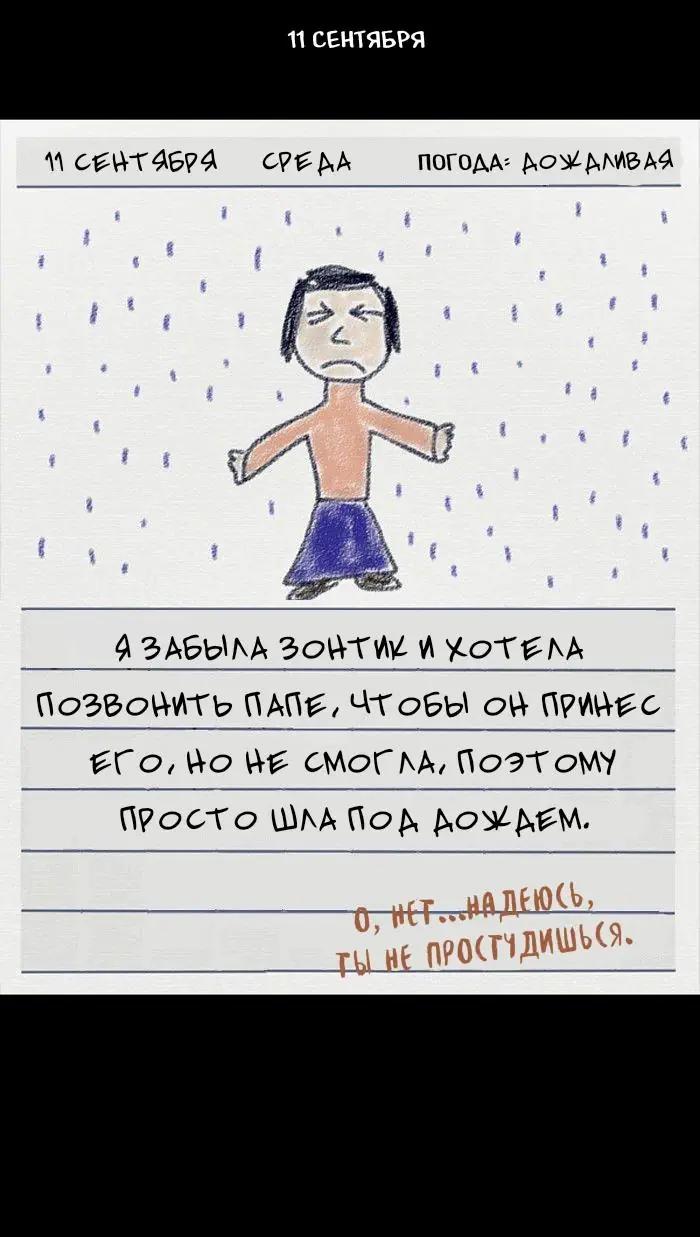 11 СЕНТЯБРЯ
11 СЕНТЯБРЯ СРЕДА ПОГОДА: ДОЖДЛИВАЯ
Я ЗАБЫЛА ЗОНТИК И ХОТЕЛА
ПОЗВОНИТЬ ПАПЕ, ЧТОБЫ ОН ПРИНЕС
ЕГО, НО НЕ СМОГЛА, ПОЭТОМУ
ПРОСТО ШЛА ПОД ДОЖДЕМ.
О, НЕТ...НАДЕЮСЬ,
ТЫ НЕ ПРОСТУДИШЬСЯ.